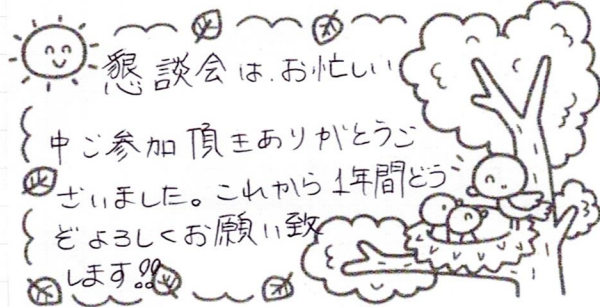 懇談会は、お忙しい
中ご参加頂きありがとうご
ざいました。これから1年間どう
ぞよろしくお願い致
します!!